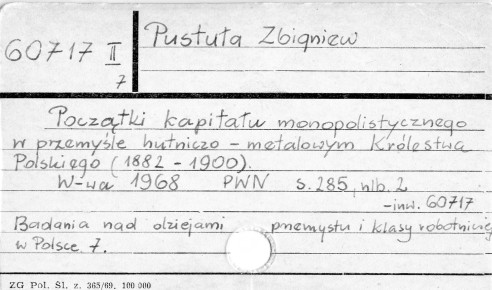 60717 II
7
Pustuła Zbigniew
Początki kapitału monopolistycznego
w przemyśle hutniczo - metalowym Królestwa
Polskiego (1882 - 1900).
W-wa 1968 PWN s. 285, nlb. 2
- inw. 60717
Badania nad dziejami przemysłu i klasy robotniczej
w Polsce 7.
ZG Pol. Śl. z. 365/69. 100 000